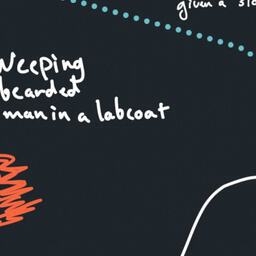 given a
Weeping
bearded
man in a labcoat